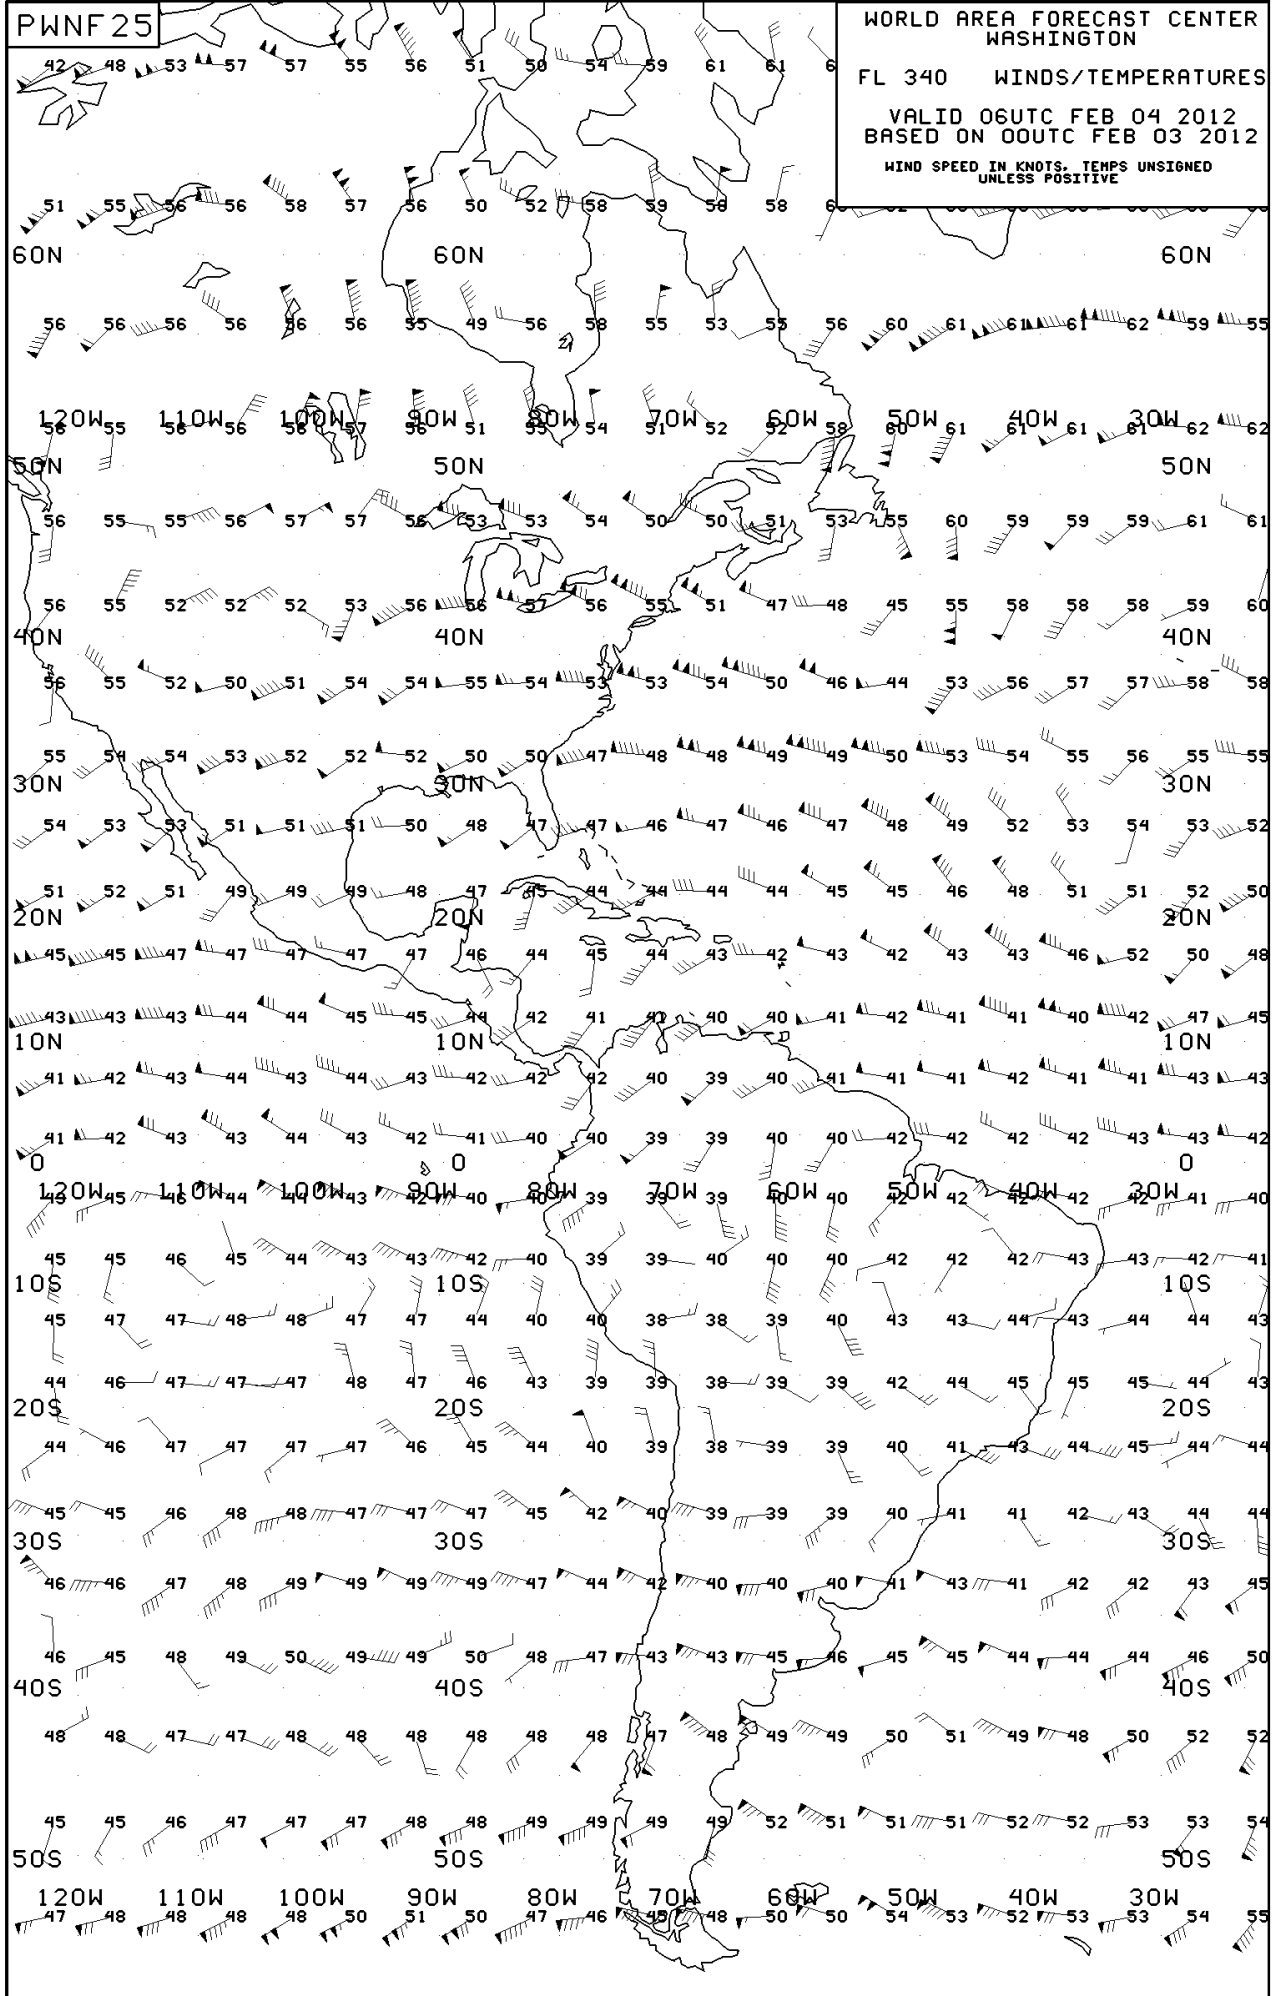 PWNF25
WORLD AREA FORECAST CENTER
WASHINGTON
FL 340 WINDS/TEMPERATURES
VALID 06UTC FEB 04 2012
BASED ON 00UTC FEB 03 2012
WIND SPEED IN KNOTS, TEMPS UNSIGNED
UNLESS POSITIVE
42 48 53 57 57 55 56 51 50 54 59 61 61
51 55 56 56 58 57 56 50 52 58 59 58
60N 60N 60N
56 56 56 56 56 56 55 49 56 58 55 53 55 56 60 61 61 61 62 59 55
120W 110W 100W 90W 80W 70W 60W 50W 40W 30W
56 55 56 56 56 57 56 51 55 54 51 52 52 58 60 61 61 61 61 62 62
50N 50N 50N
56 55 55 56 57 57 56 53 53 54 50 50 51 53 55 60 59 59 59 61 61
56 55 52 52 52 53 56 56 57 56 55 51 47 48 45 55 58 58 58 59 60
40N 40N 40N
56 55 52 50 51 54 54 55 54 53 53 54 50 46 44 53 56 57 57 58 58
55 54 54 53 52 52 52 50 50 47 48 48 49 49 50 53 54 55 56 55 55
30N 30N 30N
54 53 53 51 51 51 50 48 47 47 46 47 46 47 48 49 52 53 54 53 52
51 52 51 49 49 49 48 47 45 44 44 44 44 45 45 46 48 51 51 52 50
20N 20N 20N
45 45 47 47 47 47 47 46 44 45 44 43 42 43 42 43 43 46 52 50 48
43 43 43 44 44 45 45 44 42 41 41 40 40 41 42 41 41 40 42 47 45
10N 10N 10N
41 42 43 44 43 44 43 42 42 42 40 39 40 41 41 41 42 41 41 43 43
41 42 43 43 44 43 42 41 40 40 39 39 40 40 42 42 42 42 43 43 42
0 0 0
120W 110W 100W 90W 80W 70W 60W 50W 40W 30W
43 45 46 44 44 43 42 40 40 39 39 39 40 40 42 42 42 42 42 41 40
45 45 46 45 44 43 43 42 40 39 39 40 40 40 42 42 42 43 43 42 41
10S 10S 10S
45 47 47 48 48 47 47 44 40 40 38 38 39 40 43 43 44 43 44 44 43
44 46 47 47 47 48 47 46 43 39 39 38 39 39 42 44 45 45 45 44 43
20S 20S 20S
44 46 47 47 47 47 46 45 44 40 39 38 39 39 40 41 43 44 45 44 44
45 45 46 48 48 47 47 47 45 42 40 39 39 39 40 41 41 42 43 44 44
30S 30S 30S
46 46 47 48 49 49 49 49 47 44 42 40 40 40 41 43 41 42 42 43 45
46 45 48 49 50 49 49 50 48 47 43 43 45 46 45 45 44 44 44 46 50
40S 40S 40S
48 48 47 47 48 48 48 48 48 48 47 48 49 49 50 51 49 48 50 52 52
45 45 46 47 47 47 48 48 49 49 49 49 52 51 51 51 52 52 53 53 54
50S 50S 50S
120W 110W 100W 90W 80W 70W 60W 50W 40W 30W
47 48 48 48 48 50 51 50 47 46 45 48 50 50 54 53 52 53 53 54 55